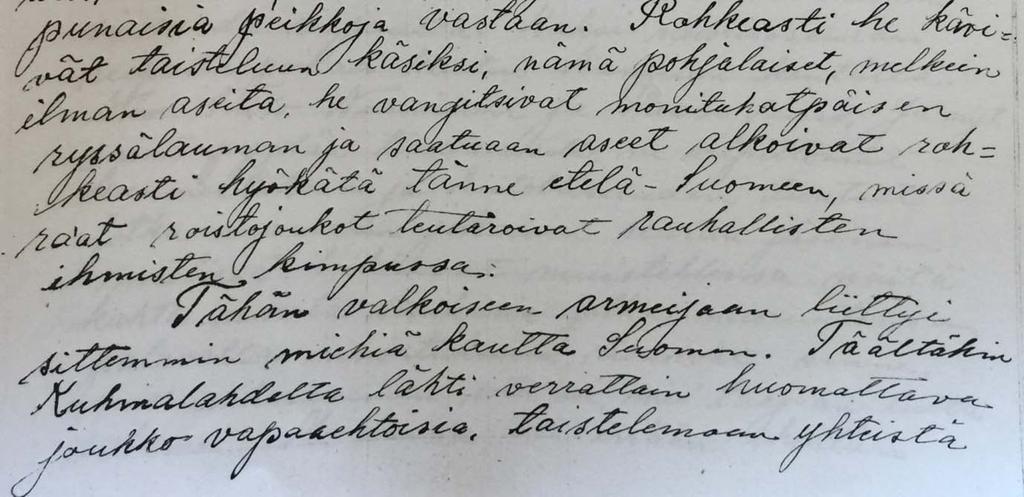 punaisia peikkoja vastaan. Rohkeasti he kävi=
vät taisteluun käsiksi, nämä pohjalaiset, melkein
ilman aseita, he vangitsivat monitukatpäisen
ryssälauman ja saatuaan aseet alkoivat roh=
keasti hyökätä tänne etelä-Suomeen, missä
räät roistojoukot teutaroivat rauhallisten
ihmisten kimpussa.
Tähän valkoiseen armeijaan liittyi
sittemmin miehiä kautta Suomen. Täältäkin
Kuhmalahdelta lähti verrattain huomattava
joukko vapaaehtoisia, taistelemaan yhteistä